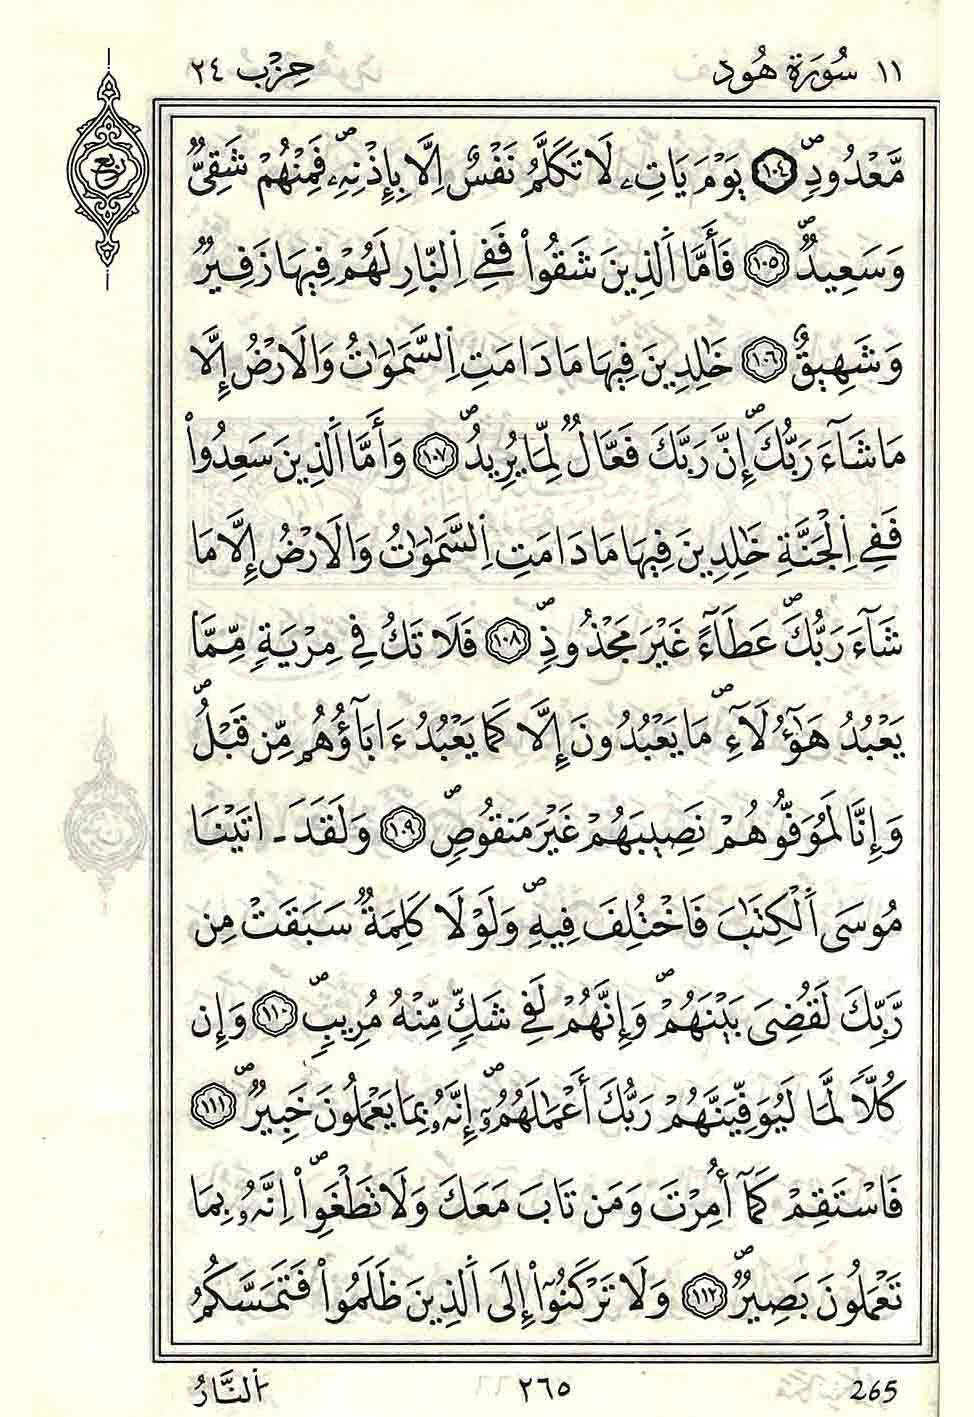 ١١ سُورَةُ هُود حِزْب ٢٤
ربع
مَّعْدُودٖۖ ١٠٤ يَوْمَ يَاتِۦ لَا تَكَلَّمُ نَفْسٌ اِلَّا بِإِذْنِهِۦۖ فَمِنْهُمْ شَقِيّٞ
وَسَعِيدٞۖ ١٠٥ فَأَمَّا اَ۬لذِينَ شَقُواْ فَفِے اِ۬لنّ۪ارِ لَهُمْ فِيهَا زَفِيرٞ
وَشَهِيقٌ ١٠٦ خَٰلِدِينَ فِيهَا مَا دَامَتِ اِ۬لسَّمَٰوَٰتُ وَالَارْضُ إِلَّا
مَا شَآءَ رَبُّكَۖ إِنَّ رَبَّكَ فَعَّالٞ لِّمَا يُرِيدُۖ ١٠٧ وَأَمَّا اَ۬لذِينَ سَعِدُواْ
فَفِے اِ۬لْجَنَّةِ خَٰلِدِينَ فِيهَا مَا دَامَتِ اِ۬لسَّمَٰوَٰتُ وَالَارْضُ إِلَّا مَا
شَآءَ رَبُّكَۖ عَطَآءً غَيْرَ مَجْذُوذٖۖ ١٠٨ فَلَا تَكُ فِے مِرْيَةٖ مِّمَّا
يَعْبُدُ هَٰٓؤُلَآءِۖ مَا يَعْبُدُونَ إِلَّا كَمَا يَعْبُدُ ءَابَآؤُهُم مِّن قَبْلُۖ
وَإِنَّا لَمُوَفُّوهُمْ نَصِيبَهُمْ غَيْرَ مَنقُوصٖۖ ١٠٩ وَلَقَدَ ـ اتَيْنَا
مُوسَي اَ۬لْكِتَٰبَ فَاخْتُلِفَ فِيهِۖ وَلَوْلَا كَلِمَةٞ سَبَقَتْ مِن
رَّبِّكَ لَقُضِيَ بَيْنَهُمْۖ وَإِنَّهُمْ لَفِے شَكّٖ مِّنْهُ مُرِيبٖۖ ١١٠ وَإِن
كُلّاٗ لَّمَا لَيُوَفِّيَنَّهُمْ رَبُّكَ أَعْمَٰلَهُمُۥٓۖ إِنَّهُۥ بِمَا يَعْمَلُونَ خَبِيرٞۖ ١١١
فَاسْتَقِمْ كَمَآ أُمِرْتَ وَمَن تَابَ مَعَكَ وَلَا تَطْغَوِاْۖ اِنَّهُۥ بِمَا
تَعْمَلُونَ بَصِيرٞۖ ١١٢ وَلَا تَرْكَنُوٓاْ إِلَي اَ۬لذِينَ ظَلَمُواْ فَتَمَسَّكُمُ
اُ۬لنَّارُ ٢٦٥ 265